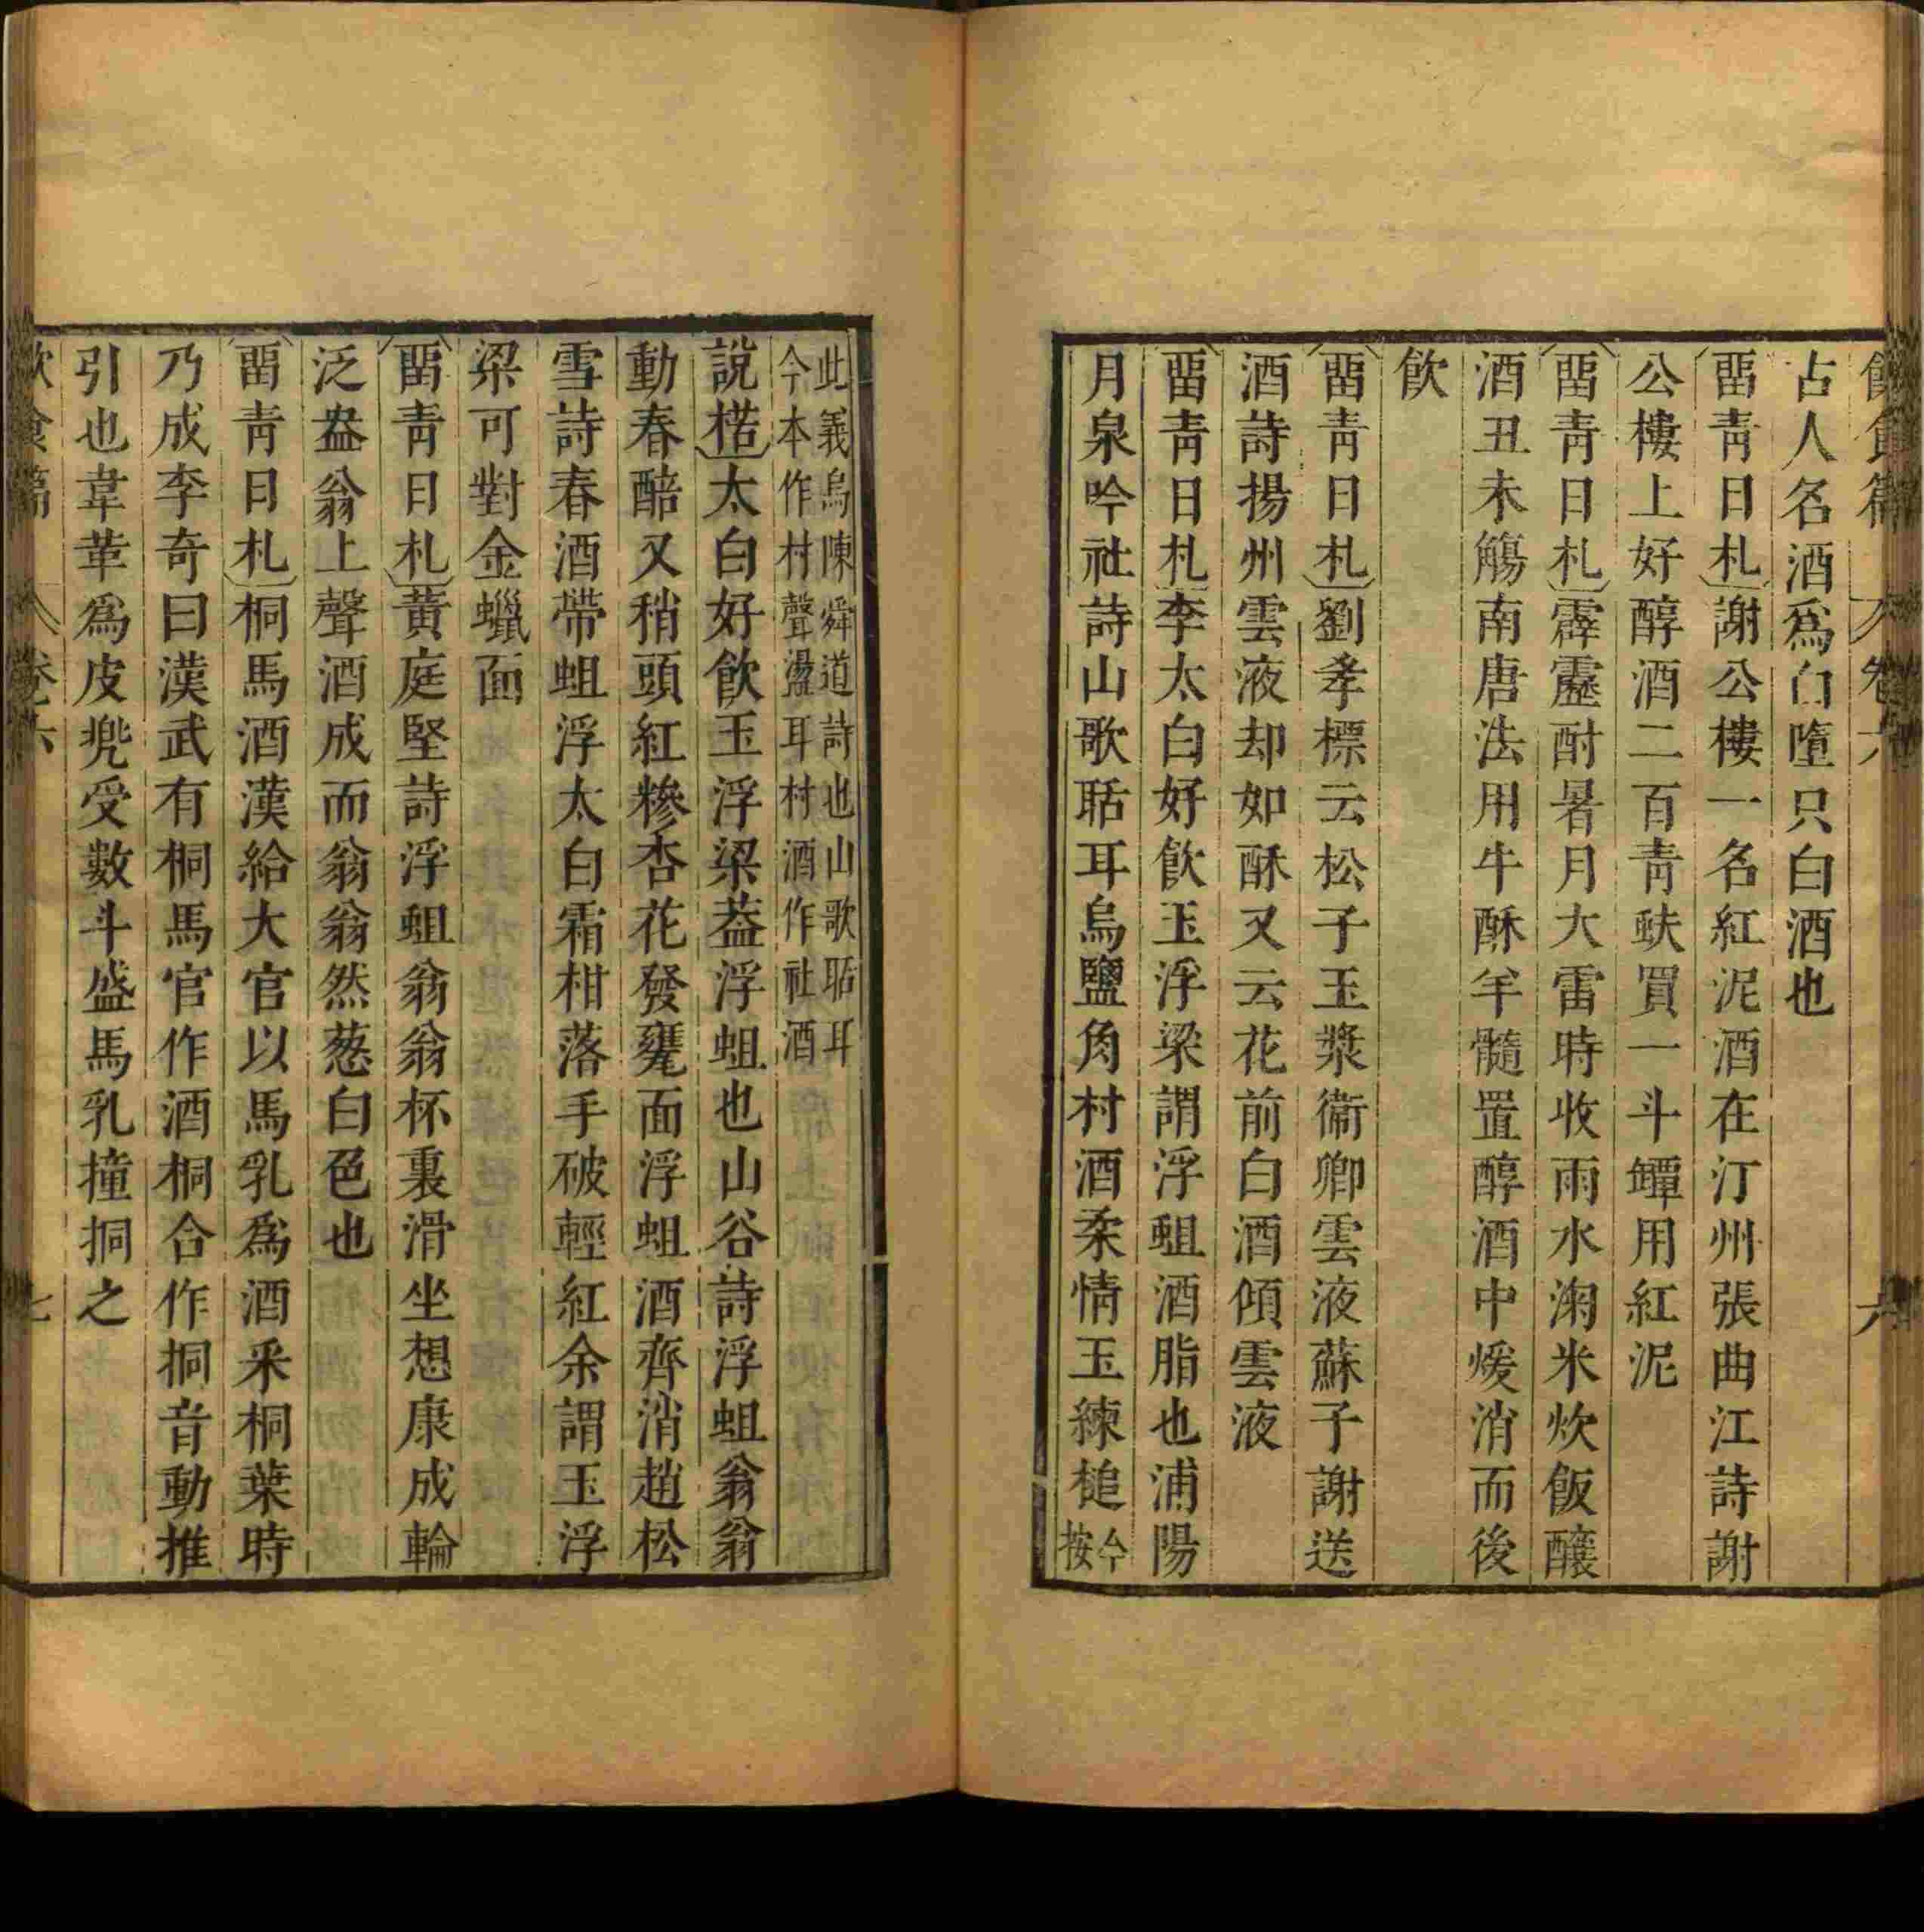 飲食篇 卷六 六
占人名酒爲白墮只白酒也
留青日札謝公樓一名紅泥酒在汀州張曲江詩謝
公樓上好醇酒二百青蚨買一斗罈用紅泥
留青日札霹靂酎暑月大雷時收雨水淘米炊飯釀
酒丑未觴南唐法用牛酥羊髓置醇酒中煖消而後
飲
留青日札劉孝標云松子玉漿衞卿雲液蘇子謝送
酒詩揚州雲液却如酥又云花前白酒傾雲液
留青日札李太白好飲玉浮梁謂浮蛆酒脂也浦陽
月泉吟社詩山歌聒耳烏鹽角村酒柔情玉練槌今按
此義烏陳舜道詩也山歌聒耳
今本作村聲盪耳村酒作社酒
說楛太白好飲玉浮梁葢浮蛆也山谷詩浮蛆翁翁
動春醅又稍頭紅糝杏花發甕面浮蛆酒齊消趙松
雪詩春酒帶蛆浮太白霜柑落手破輕紅余謂玉浮
梁可對金蠟面
留青日札黃庭堅詩浮蛆翁翁杯裏滑坐想康成輪
泛盎翁上聲酒成而翁翁然葱白色也
留青日札桐馬酒漢給大官以馬乳爲酒釆桐葉時
乃成李奇曰漢武有桐馬官作酒桐合作挏音動推
引也韋革爲皮兠受數斗盛馬乳撞挏之
飲食篇 卷六 七